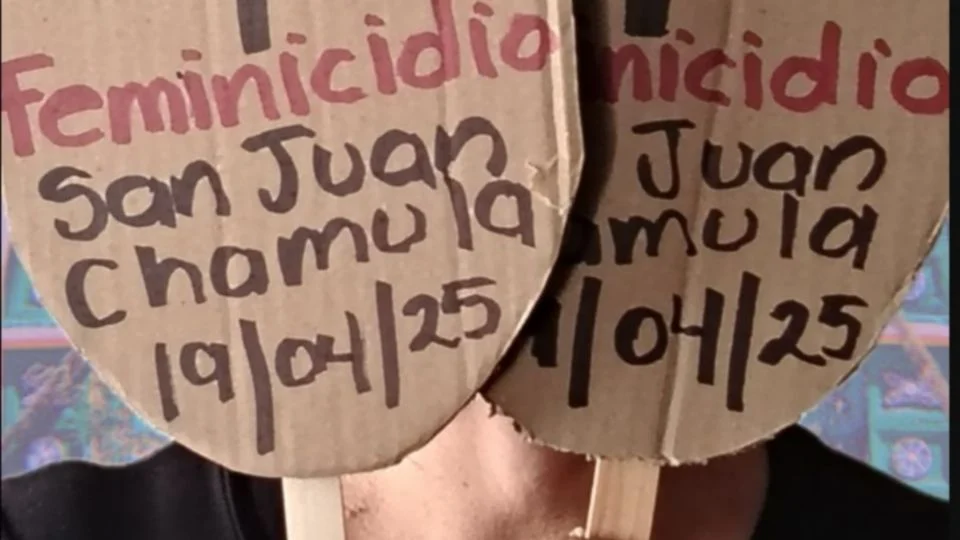 feminicidio
San Juan
Chamula
19/04/25
nicidio
Juan
amula
1/04/25